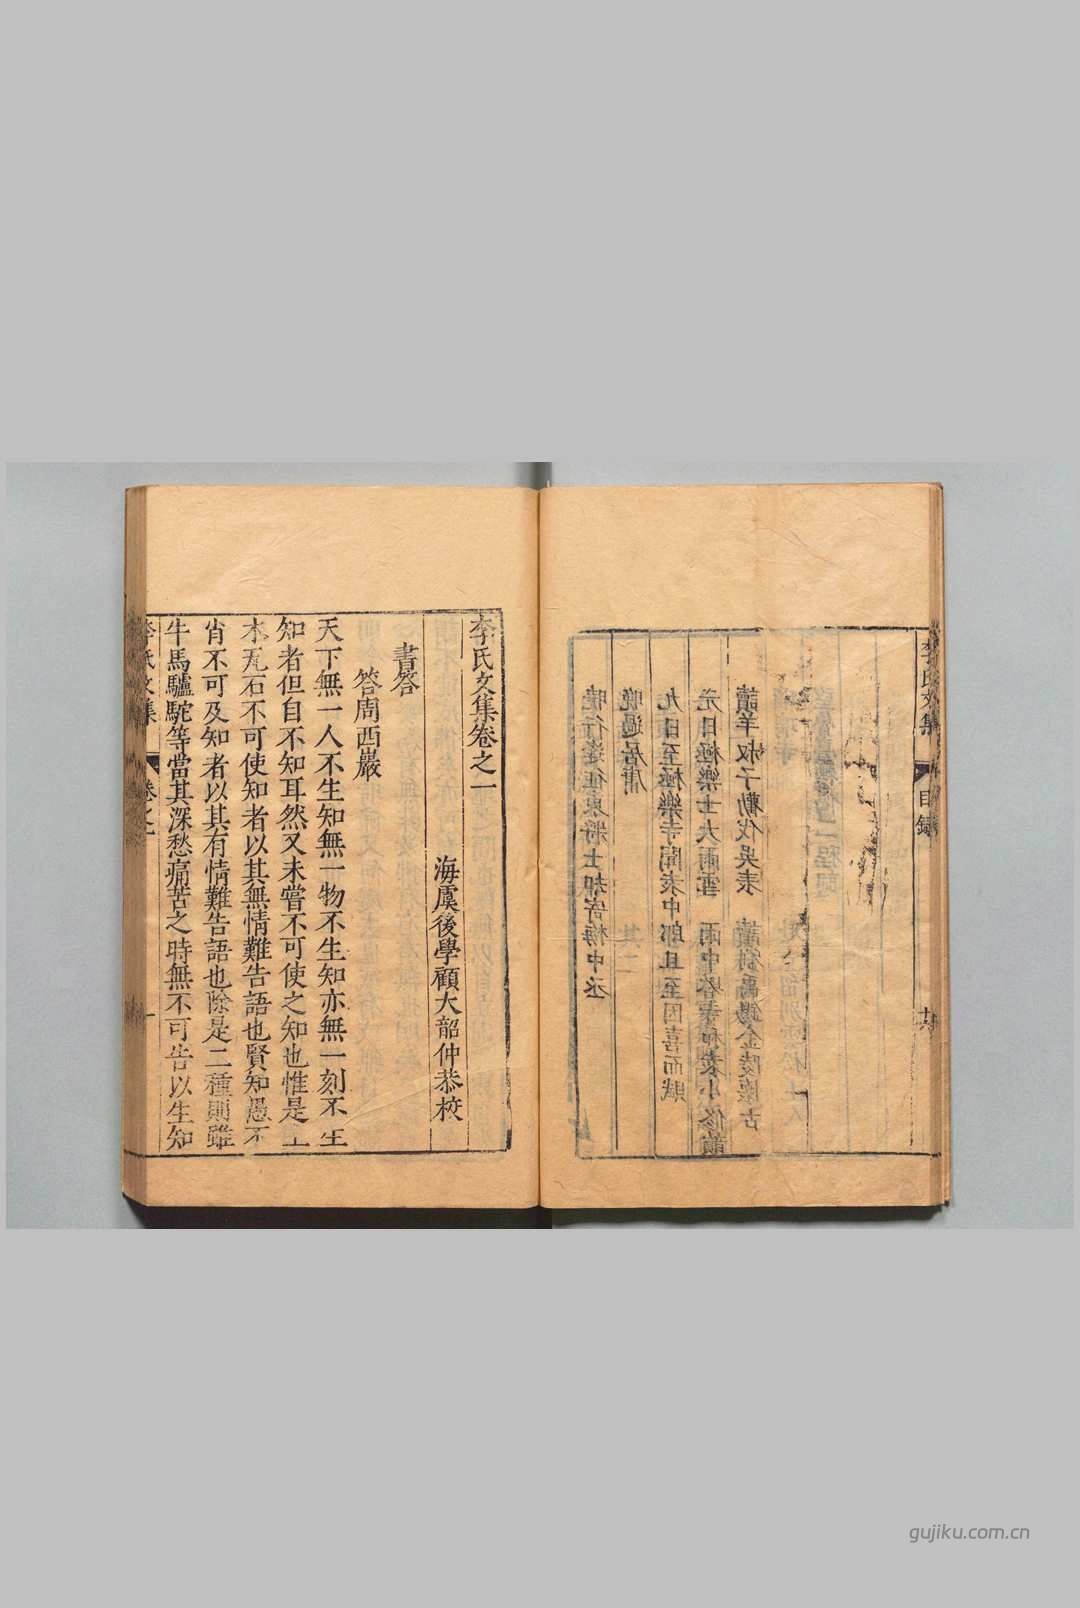 李氏文集
目錄
十六
讀羊叔子勸伐吳表 讀劉禹錫金陵懷古
元日極樂寺大雨雪 雨中塔寺和袁小修韻
九日至極樂寺聞袁中郎且至因喜而賦
晚過居庸
曉行逢征東將士却寄梅中丞
李氏文集卷之一
海虞後學顧大韶仲恭校
書答
答周西巖
天下無一人不生知無一物不生知亦無一刻不生
知者但自不知耳然又未嘗不可使之知也惟是土
木瓦石不可使知者以其無情難告語也賢知愚不
肖不可及知者以其有情難告語也除是二種則雖
牛馬驢駝等當其深愁痛苦之時無不可告以生知
李氏文集
卷之一
一
gujiku.com.cn